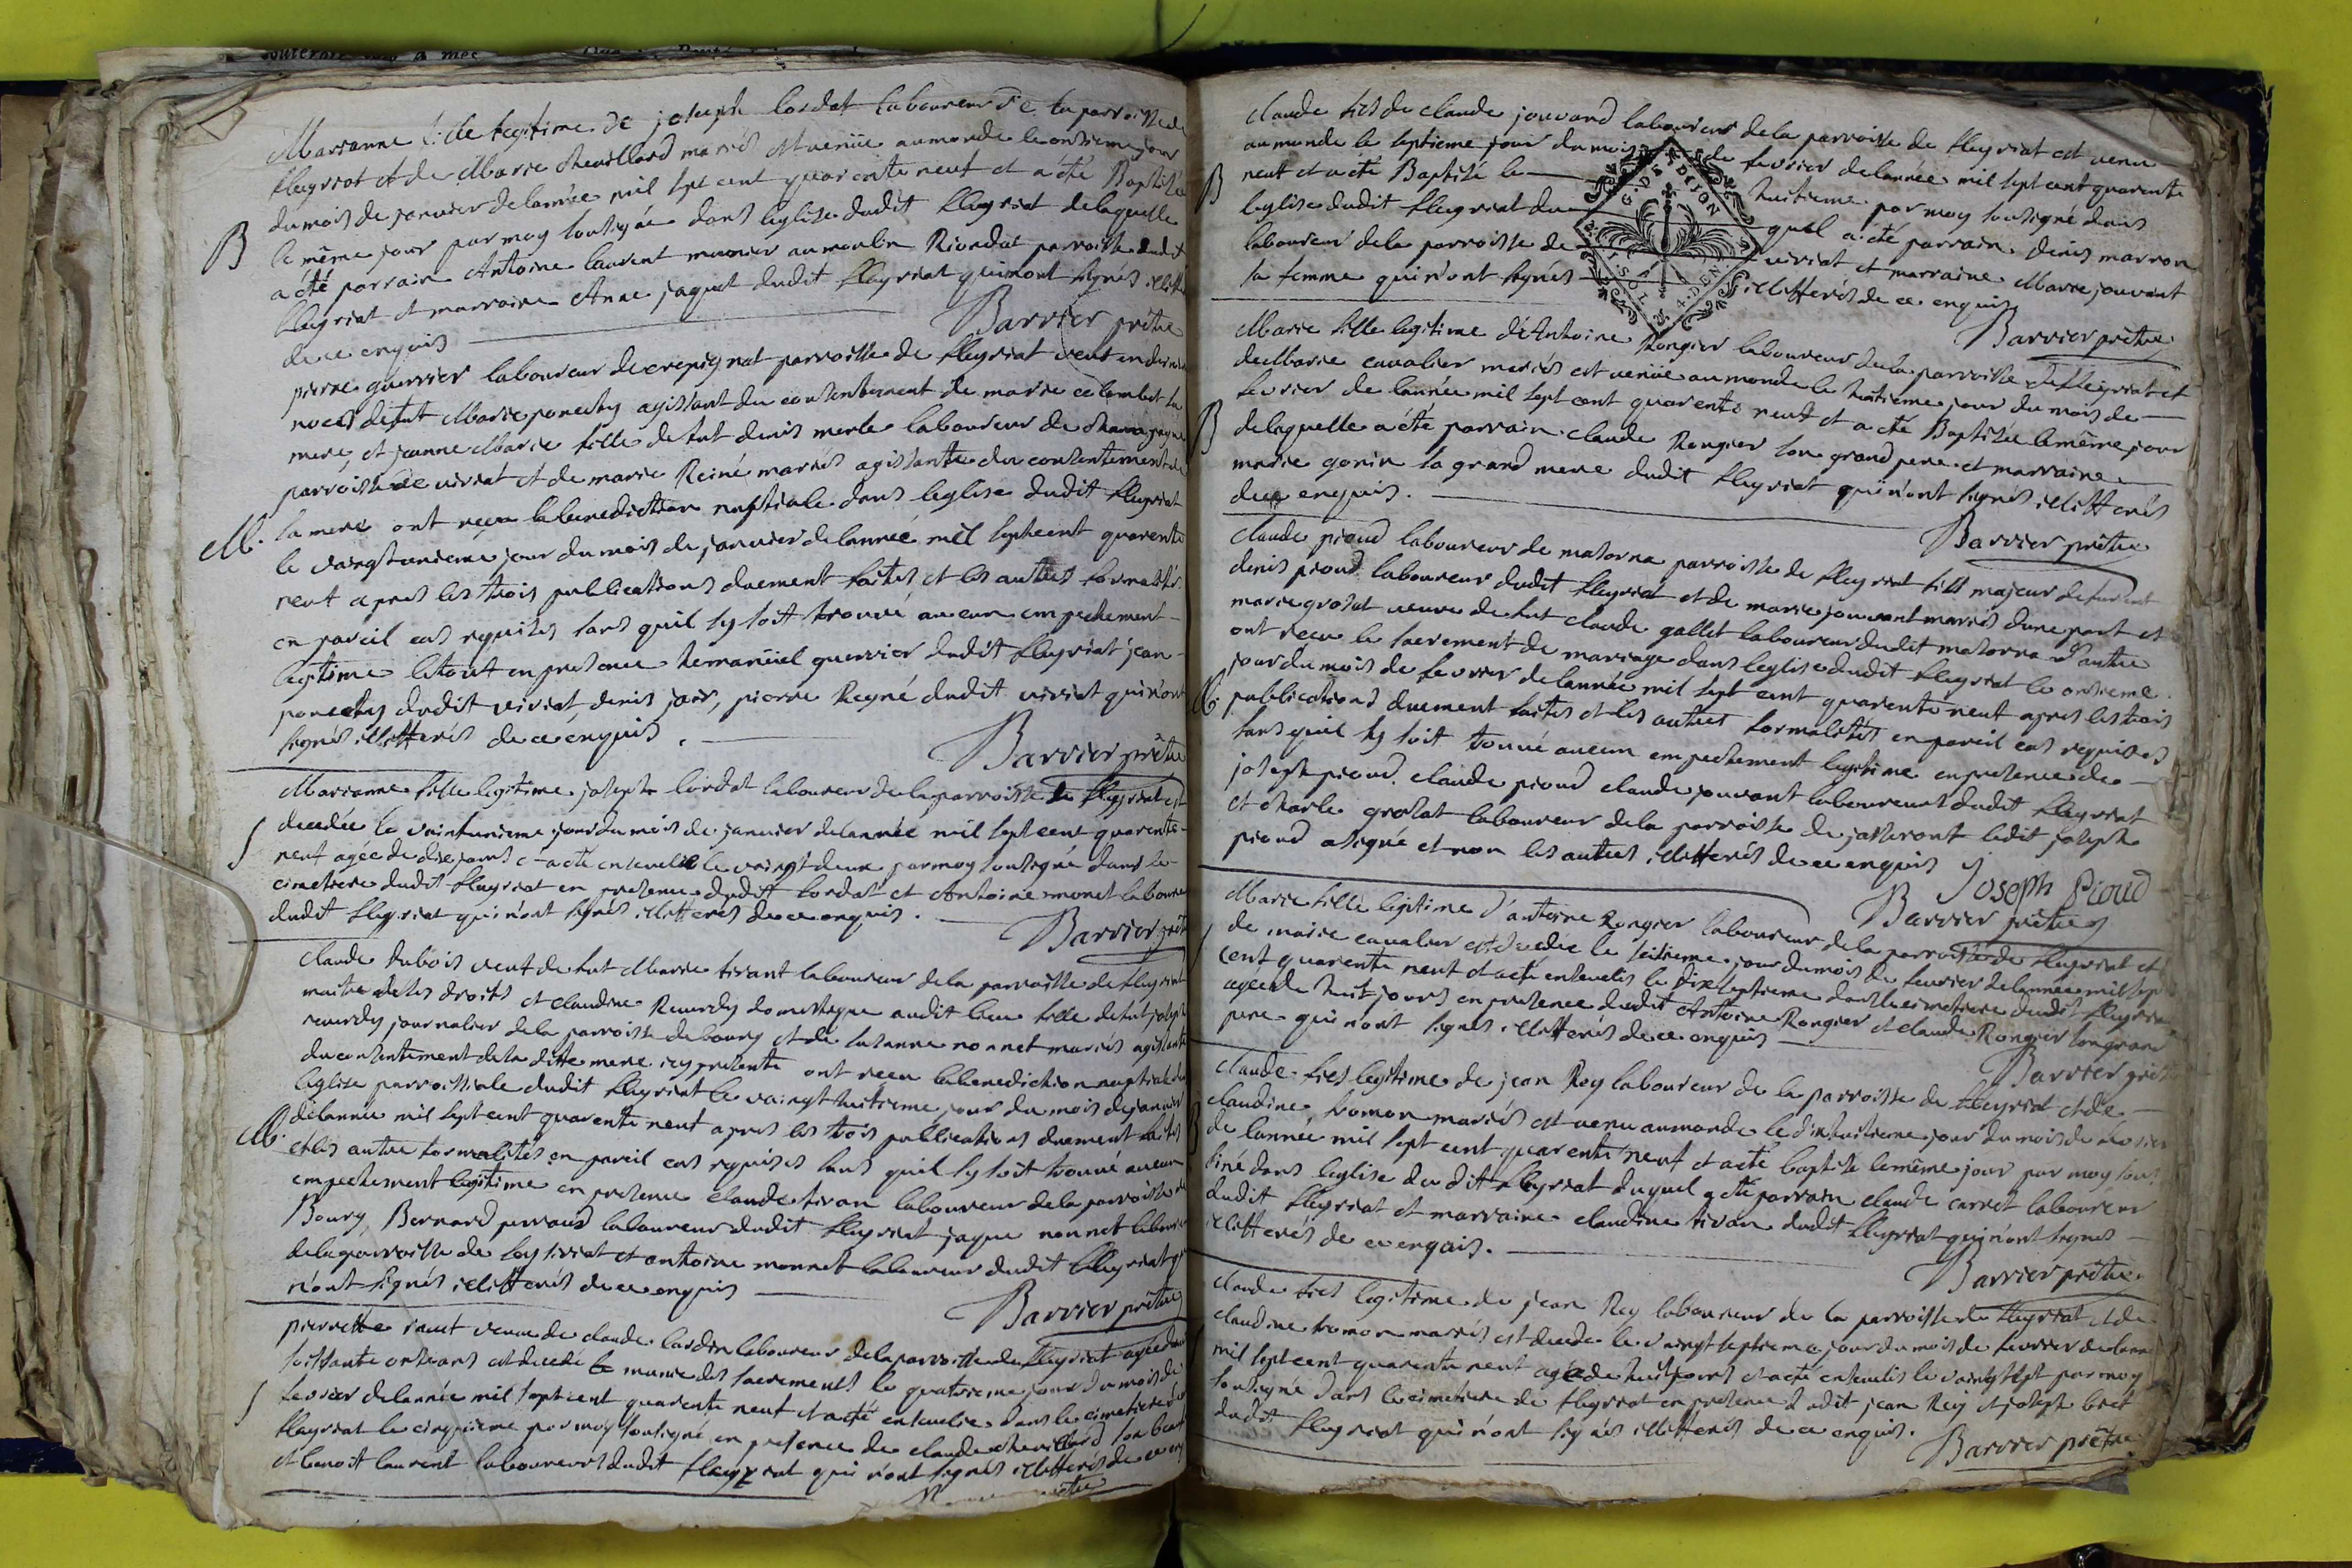 Marianne fille legitime de joseph lordat laboureur de la parroisse de
fleyriat et de Marie chevillard mariés est venüe au monde le onzieme jour
du mois de janvier de lannée mil sept cent quarente neuf et a été Baptisée
B
le même jour par moy sousigné dans leglise dudit fleyriat de laquelle
a été parrain Antoine laurent munier au moulin Riondat parroisse dudit
fleyriat et marraine Anne jaquet dudit fleyriat qui n'ont signés illitt
de ce enquis
Barrier prêtre
pierre guerrier laboureur de crepignat parroisse de fleyriat veuf en
noces de fut Marie ponechy agissant du consentement de marie colombet sa
mere, et jeanne Marie fille de fut denis merle laboureur de
parroisse de viriat et de marie Reiné mariés agissante du consentement de
M.
sa mere ont reçu la benediction nuptiale dans leglise dudit fleyriat
le vaingt unieme jour du mois de janvier de lannée mil septcent quarente
neuf apres les trois publications duement faites, et les autres formalités
en pareil cas requises sans quil sy soit trouvé aucun empechement
legitime le tout en presence hemanüel guerrier dudit fleyriat jean
ponechy dudit viriat, denis jair, pierre Reyné dudit viriat qui n'ont
signés illitterés de ce enquis.
Barrier prêtre
Marianne fille legitime joseph lordat laboureur de la parroisse de fleyriat est
S
decedée le vaint unieme jour du mois de janvier de lannée mil sept cent quarente
neuf agée de dix jours et a été ensevelie le vaingt deux par moy sousigné dans le
cimetiere dudit fleyriat en presence dudit lordat et Antoine monet laboureur
dudit fleyriat qui n'ont signés illitterés de ce enquis.
Barrier prêt
claude Dubois veuf de fut Marie tirant laboureur de la parroisse de fleyriat
maitre de ses droits et claudine Reverdy domestique audit lieu fille de fut joseph
reverdy journalier de la parroisse de bourg et de susanne nonnet mariés agissante
du consentement de sa ditte mere icy presente ont recu la benediction nuptiale dans
leglise parroissiale dudit fleyriat le vaingt huitieme jour du mois de janvier
M.
de lannée mil sept cent quarente neuf apres les trois publications duement faites
et les autre formalités en pareil cas requises sans quil sy soit trouvé aucun
empechement legitime en presence claude tivan laboureur de la parroisse de
Bourg, Bernard perraud laboureur dudit fleyriat jaque nonnet laboureur
de la parroisse de et antoine monnet laboureur dudit fleyriat qui
n'ont signés illitterés de ce enquis
Barrier prêtre
pierrette veuve de claude lardin laboureur de la parroisse de fleyriat agée de
soissante onze ans est decedé munie des sacrements le quatrieme jour du mois de
S
fevrier de lannée mil sept cent quarente neuf et a été ensevelie dans le cimetiere de
fleyriat le cinquieme par moy sousigné en presence de claude chevillard son beau
et benoit laurent laboureurs dudit fleyriat qui n'ont signés illitterés de ce enq
claude fils de claude jouvand laboureur de la parroisse de fleyriat est venu
au monde le septieme jour du mois de fevrier de lannée mil sept cent quarente
B
neuf et a été Baptisé le huitieme par moy sousigné dans
leglise dudit fleyriat du quel a été parrain denis marron
laboureur de la parroisse de viriat et marraine Marie jouvent
sa femme qui n'ont signés illitterés de ce enquis
G. DE
4. DEN
Barrier prêtre
Marie fille legitime d'Antoine Rongier laboureur de la parroisse de fleyriat et
de Marie cavalier mariés est venüe au monde le huitieme jour du mois de
fevrier de lannée mil sept cent quarente neuf et a été Baptisée le même jour
B
de laquelle a été parrain claude Rongier son grand pere et marraine
marie gonin sa grand mere dudit fleyriat qui n'ont signés illitterés
de ce enquis.
Barrier prêtre
claude pioud laboureur de matorna parroisse de fleyriat fils majeur de
denis pioud laboureur dudit fleyriat et de marie jouvent mariés dune part et
marie grosat veuve de fut claude gallet laboureur dudit matorna d'autre
ont reçu le sacrement de mariage dans leglise dudit fleyriat le onzieme
jour du mois de fevrier de lannée mil sept cent quarente neuf apres les trois
M.
publications duement faites et les autres formalités en pareil cas requises
sans quil sy soit trouvé aucun empechement legitime en presence de
joseph pioud. claude pioud claude jouvant laboureurs dudit fleyriat
et charle grosat laboureur de la parroisse de jasseront ledit joseph
pioud a signé et non les autres illitterés de ce enquis
Joseph Pioud
Barrier prêtre
Marie fille legitime d'antoine Rongier laboureur de la parroisse de fleyriat et
de marie cavalier est decedée le seizieme jour du mois de fevrier de lannée mil sept
cent quarente neuf et a été ensevelie le dix septieme dans le cimetiere dudit fleyriat
agée de huit jours en presence dudit Antoine Rongier et claude Rongier son grand
pere qui n'ont signés illitterés de ce enquis
Barrier prêt
claude fils legitime de jean Rey laboureur de la parroisse de fleyriat et de
claudine mariés est venu au monde le dixhuitieme jour du mois de fevrier
B
de lannée mil sept cent quarente neuf et a été baptisé le même jour par moy sous
siné dans leglise du dit fleyriat duquel a été parrain claude carret laboureur
dudit fleyriat et marraine claudine tivan dudit fleyriat qui n'ont signés
illitterés de ce enquis.
Barrier prêtre
claude fils legitime de jean Rey laboureur de la parroisse de fleyriat et de
claudine mariés est decedé le vaingt septieme jour du mois de fevrier de lannée
mil septcent quarente neuf agée de huit jours et a été ensevelis le vaingt sept par moy
sousigné dans le cimetiere de fleyriat en presence dudit jean Rey et joseph bret
dudit fleyriat qui n'ont signés illitterés de ce enquis.
Barrier prêtre